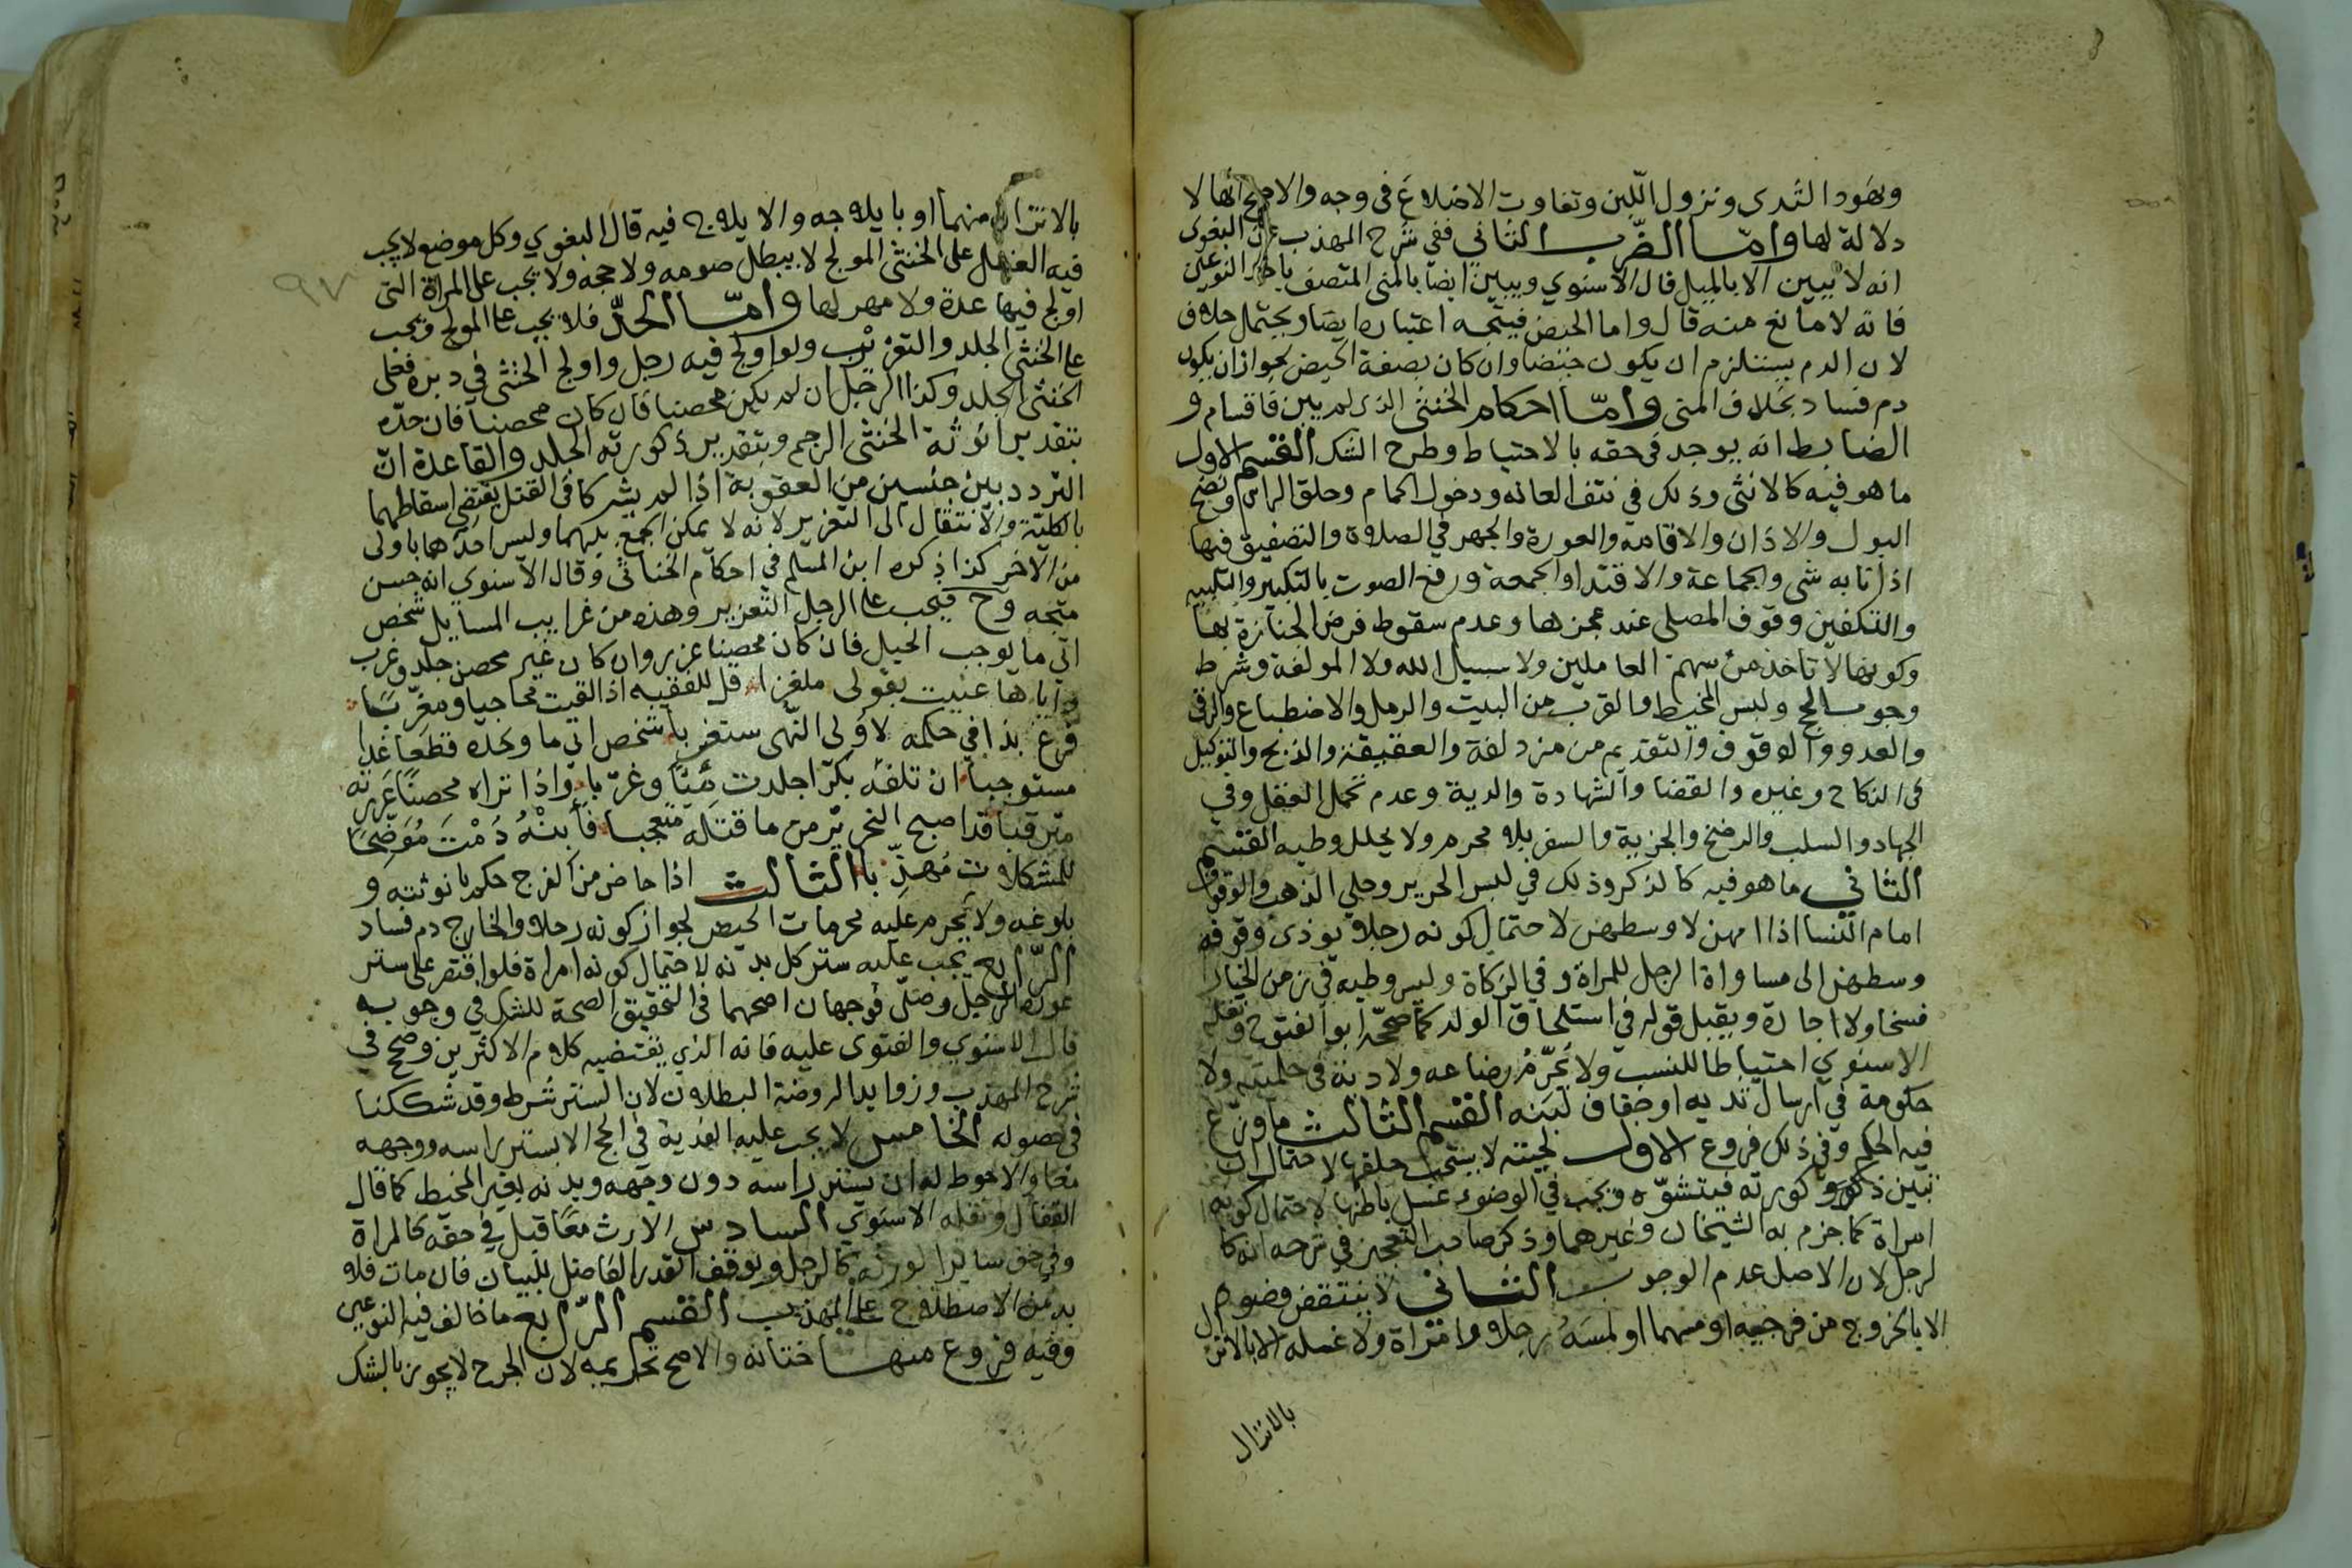 ونهود الثدى ونزول اللّبن وتفاوت الاضلاع فى وجه والاصح انها لا
دلالة لها وامّا الضّرب الثاني ففي شرح المهذب عن البغوى
انه لا يبين الا بالميل قال الاسنوي ويبين ايضا بالمنى المتصف باحد النوعين
فانه لا مانع منه قال واما الحيض فيتجه اعتباره ايضا ويحتمل خلافه
لان الدم يستلزم ان يكون حيضا وان كان بصفة الحيض لجواز ان يكون
دم فساد بخلاف المنى وامّا احكام الخنثى الذى لم يبن فاقسام و
الضابط انه يوجد فى حقه بالاحتياط وطرح الشك القسم الاول
ما هو فيه كالانثى وذلك في نتف العانه ودخول الحمام وحلق الراس ونضح
البول والاذان والاقامه والعورة والجهر فى الصلاة والتصفيق فيها
اذا نابه شى والجماعة والاقتدا والجمعة ورفع الصوت بالتكبير والتلبيه
والتكفين وقوف المصلى عند عجزها وعدم سقوط فرض الجنازة بها
وكونها لا تاخذ من سهم العاملين ولا سبيل الله ولا المولفة وشرط
وجوب الحج ولبس المخيط والقرب من البيت والرمل والاضطباع والرقى
والعدو والوقوف والتقديم من مزدلفة والعقيقة والذبح والتوكيل
فى النكاح وغيره والقضا والشهادة والدية وعدم تحمل العقل وفي
الجهاد والسلب والرضخ والجزية والسفر بلا محرم ولا يحلل وطيه القسم
الثاني ما هو فيه كالذكر وذلك في لبس الحرير وحلي الذهب والوقوف
امام النسا اذا امهن لا وسطهن لاحتمال كونه رجلا فيؤدى وقوفه
وسطهن الى مساواة الرجل للمراة وفي الزكاة وليس وطيه في زمن الخيار
فسخا ولا اجازة ويقبل قوله في استلحاق الولد كما صححه ابو الفتوح ونقله
الاسنوي احتياطا للنسب ولا يُحرّمُ رضاعه ولا دية في حلمتيه ولا
حكومة في ارسال ثديه او جفاف لبنه القسم الثالث ما وزع
فيه الحكم وفي ذلك فروع الاول لحيته لا يستحب حلقها لاحتمال ان
تبين ذكورته فيتشوّه ويجب في الوضوء غسل باطنها لاحتمال كونه
امراة كما جزم به الشيخان وغيرهما وذكر صاحب التعجيز في شرحه انه كا
لرجل لان الاصل عدم الوجوب الثاني لا ينتقض وضوه
الا بالخروج من فرجيه او مسهما او لمسه رجلا وامراة ولا غسله الا بالانزال
بالانزال
بالانزال منهما او بايلاجه والايلاج فيه قال البغوي وكل موضع لا يجب
فيه الغسل على الخنثى المولج لا يبطل صومه ولا حجه ولا يجب على المراة التى
اولج فيها عدة ولا مهر لها وامّا الحدّ فلا يجب على المولج ويجب
على الخنثى الجلد والتغريب ولو اولج فيه رجل واولج الخنثى في دبره فعلى
الخنثى الجلد وكذا الرجل ان لم يكن محصنا فان كان محصنا فان حدّه
بتقدير انوثة الخنثى الرجم وبتقدير ذكورته الجلد والقاعدة انّ
التردد بين جنسين من العقوبة اذا لم يشتركا فى القتل يقتضى اسقاطهما
بالكليّة والانتقال الى التعزير لانه لا يمكن الجمع بينهما وليس احدهما باولى
من الاخر كذا ذكره ابن المسلم في احكام الخناثى وقال الاسنوي انه حسن
متجه وح فيجب على الرجل التعزير وهذه من غرايب المسايل شخص
اتى ما يوجب الحد فان كان محصنا عزر وان كان غير محصن جلد وغرب
واياها عنيت بقولى ملغزا قل للفقيه اذا لقيت محاجيا ومغرّبا
فرع بذا في حكمه لاولى النهى ستغربا شخص اتى ما وحده قطعا غدا
مستوجبا ان تلفه بكرا جلدت وغرّبا واذا تراه محصنًا عزرته
مترقبا قد اصبح النحرير من ما قتله متعجبا فأبِنْهُ دُمْتَ مُوَضِّحًا
للمشكلات مُهذّبا الثالث اذا حاض من الفرج حكم بانوثته و
بلوغه ولا يحرم عليه محرمات الحيض لجواز كونه رجلا والخارج دم فساد
الرّابع يجب عليه ستر كل بدنه لاحتمال كونه امراة فلو اقتصر على ستر
عورة الرجل وصلّى فوجهان اصحهما فى التحقيق الصحة للشك في وجوبه
قال الاسنوي والفتوى عليه فانه الذي يقتضيه كلام الاكثرين وصحح في
شرح المهذب وزوايد الروضة البطلان لان الستر شرط وقد شككنا
فى حصوله الخامس لا يجب عليه الفدية في الحج الا بستر راسه ووجهه
معا والاحوط له ان يستر راسه دون وجهه وبدنه بغير المخيط كما قال
القفال ونقله الاسنوي السادس الارث معًا قبل في حقه كالمراة
وفي حق ساير الورثه كالرجل ويوقف القدر الفاضل للبيان فان مات فلا
بد من الاصطلاح على المذهب القسم الرّابع ما خالف فيه النوعين
وفيه فروع منها ختانه والاصح تحريمه لان الجرح لا يجوز بالشك